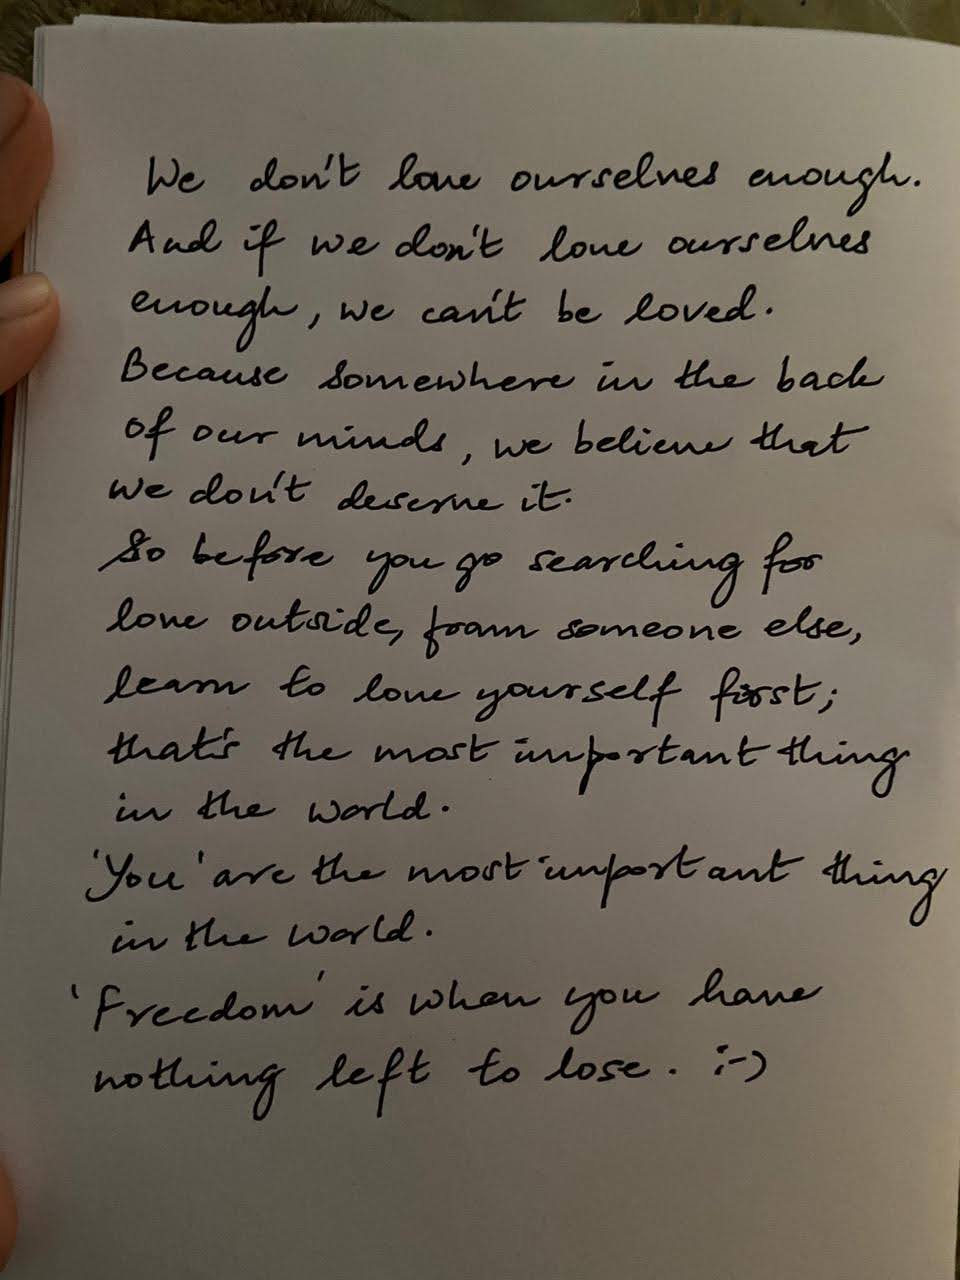 We don't love ourselves enough.
And if we don't love ourselves
enough, we can't be loved.
Because somewhere in the back
of our minds, we believe that
we don't deserve it.
So before you go searching for
love outside, from someone else,
learn to love yourself first;
that's the most important thing
in the world.
'You' are the most important thing
in the world.
'Freedom' is when you have
nothing left to lose. :-)